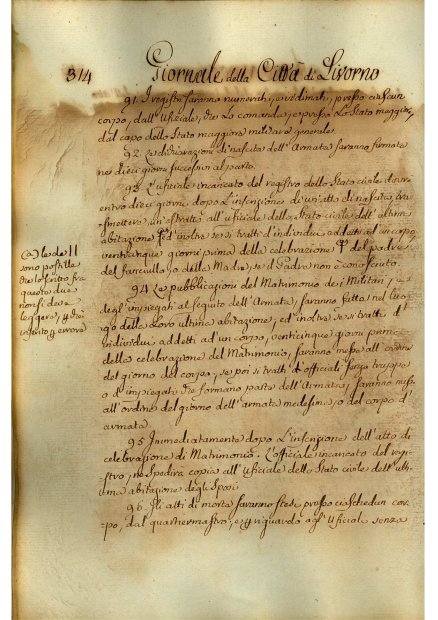 314 Giornale della Città di Livorno
91. I registri saranno numerati, e vidimati, presso ciascun
corpo, dall' Ufficiale, che Lo comanda, e presso Lo Stato maggiore
dal capo dello Stato maggiore militare generale.
92. Le dichiarazioni di nascita dell' Armata saranno firmate
nei dieci giorni successivi al parto.
93. L'ufficiale incaricato del registro dello Stato civile dovrà
entro dieci giorni dopo l'inscrizione di un' atto di nascita tra-
smettere un' estratto all' ufficiale dello Stato civile dell' ultima
abitazione ed' inoltre se si tratti d'individui addetti ad un corpo
venticinque giorni prima della celebrazione del padre
del fanciullo, o della Madre, se il Padre non è conosciuto
(a) le de II
sono postille
che lo scritto fra
queste due
non si deve
leggere, errore
94. Le pubblicazioni del Matrimonio dei Militari, e
degl' impiegati al seguito dell' Armata, saranno fatte nel luo-
go della Loro ultima abitazione, ed inoltre se si tratti d'
individui addetti ad un corpo, venticinque giorni prima
della celebrazione del Matrimonio, saranno messe all' ordine
del giorno del corpo, se poi si tratti d'officiali senza truppa
o d' impiegati che formano parte dell' Armata, saranno messe
all' ordine del giorno dell' armata medesima, o del corpo d'
armata.
95. Immediatamente dopo L'inscrizione dell' atto di
celebrazione di Matrimonio. L'officiale incaricato del regi-
stro, ne spedirà copia all' Ufficiale dello Stato civile dell' ulti-
ma abitazione degli Sposi
96. Gli atti di morte saranno stesi presso ciaschedun cor-
po, dal quartiermastro, e riguardo agl' Ufficiale senza